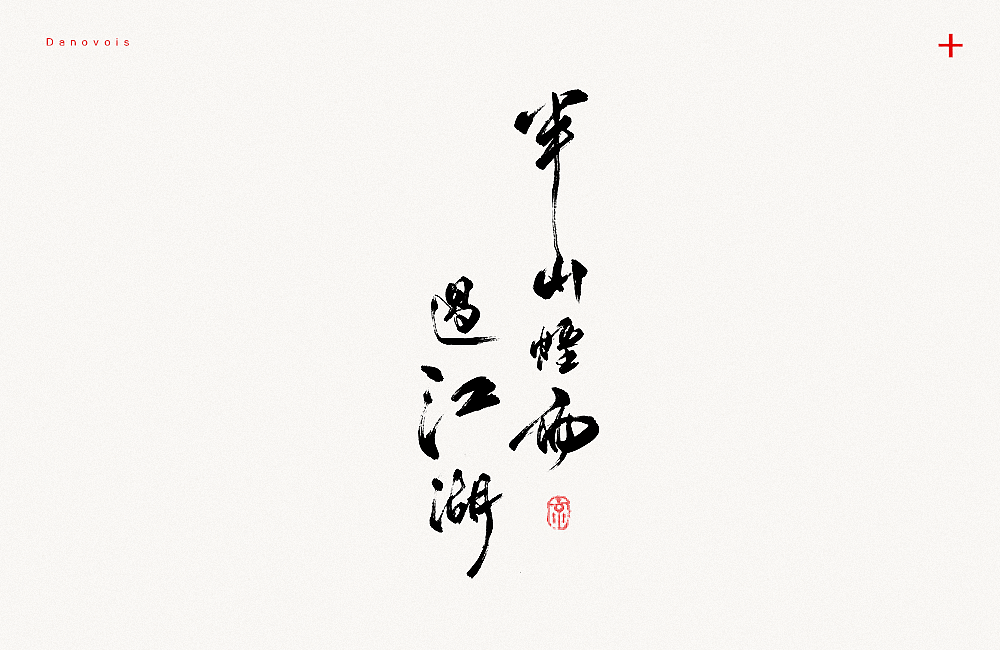 Danovois
半山煙雨
過江湖